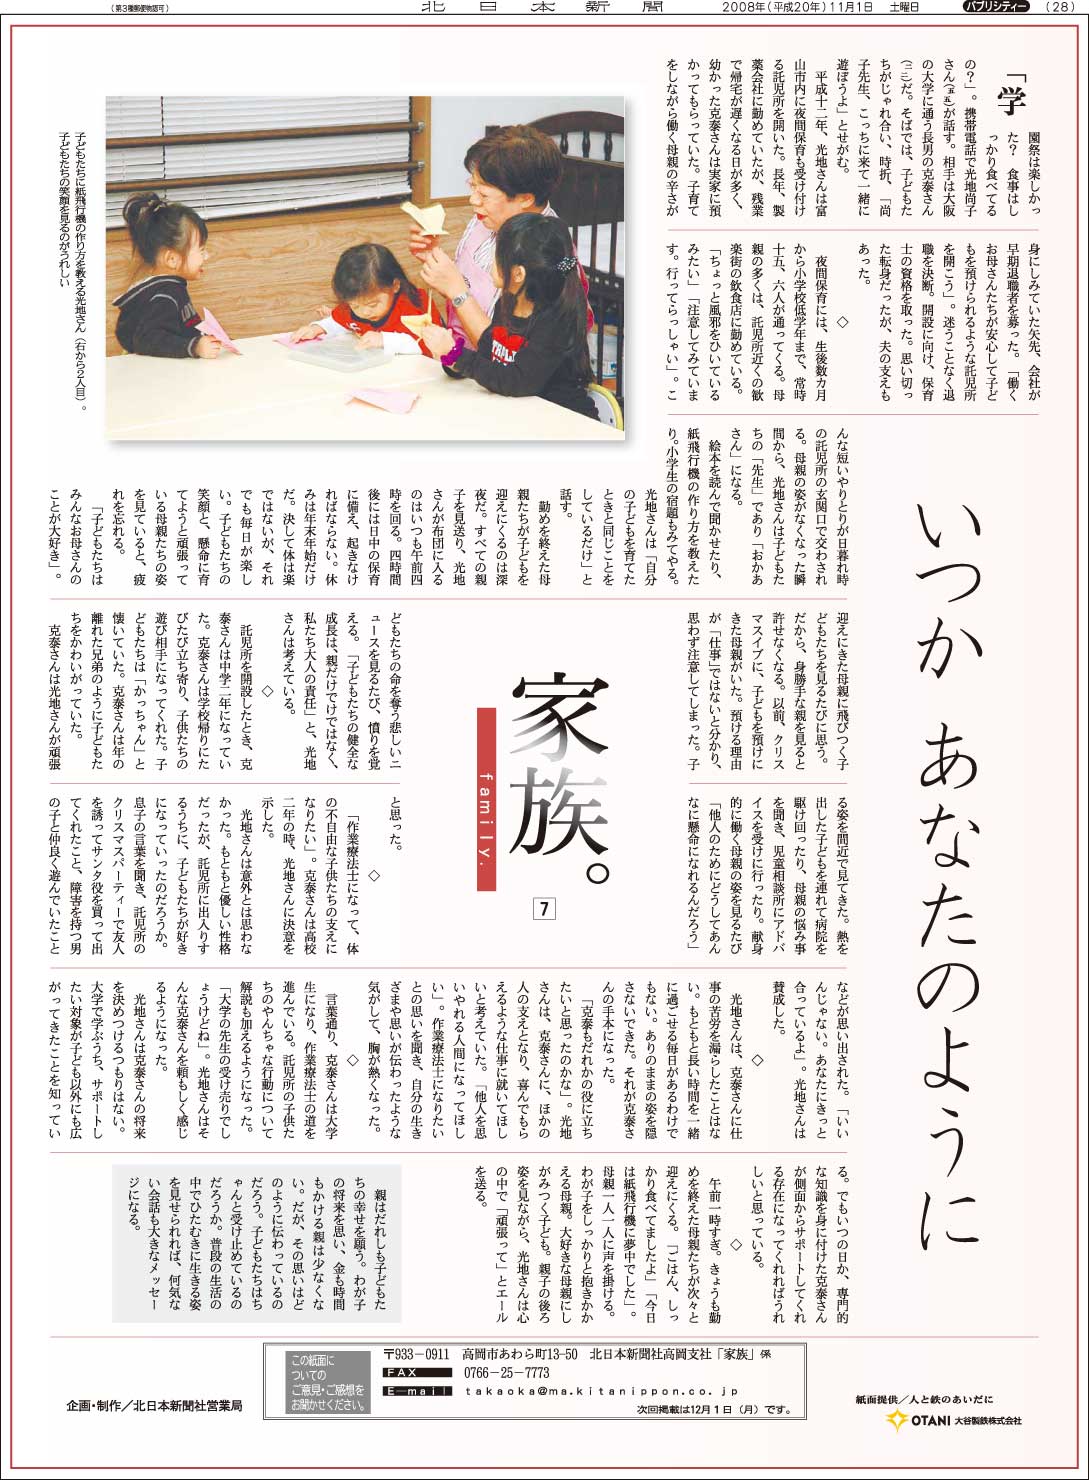 (第3種郵便物認可)
北日本新聞
2008年(平成20年)11月1日　土曜日
パブリシティー
(28)
いつか あなたのように
家族。
family.
7
「学
園祭は楽しかっ
た？　食事はし
っかり食べてる
の？」。携帯電話で光地尚子
さん(五五)が話す。相手は大阪
の大学に通う長男の克泰さん
(二二)だ。そばでは、子どもた
ちがじゃれ合い、時折、「尚
子先生、こっちに来て一緒に
遊ぼうよ」とせがむ。
平成十二年、光地さんは富
山市内に夜間保育も受け付け
る託児所を開いた。長年、製
薬会社に勤めていたが、残業
で帰宅が遅くなる日が多く、
幼かった克泰さんは実家に預
かってもらっていた。子育て
をしながら働く母親の辛さが
身にしみていた矢先、会社が
早期退職者を募った。「働く
お母さんたちが安心して子ど
もを預けられるような託児所
を開こう」。迷うことなく退
職を決断。開設に向け、保育
士の資格を取った。思い切っ
た転身だったが、夫の支えも
あった。
◇
夜間保育には、生後数カ月
から小学校低学年まで、常時
十五、六人が通ってくる。母
親の多くは、託児所近くの歓
楽街の飲食店に勤めている。
「ちょっと風邪をひいている
みたい」「注意してみていま
す。行ってらっしゃい」。こ
んな短いやりとりが日暮れ時
の託児所の玄関口で交わされ
る。母親の姿がなくなった瞬
間から、光地さんは子どもた
ちの「先生」であり「おかあ
さん」になる。
絵本を読んで聞かせたり、
紙飛行機の作り方を教えた
り。小学生の宿題もみてやる。
光地さんは「自分
の子どもを育てた
ときと同じことを
しているだけ」と
話す。
勤めを終えた母
親たちが子どもを
迎えにくるのは深
夜だ。すべての親
子を見送り、光地
さんが布団に入る
のはいつも午前四
時を回る。四時間
後には日中の保育
に備え、起きなけ
ればならない。休
みは年末年始だけ
だ。決して体は楽
ではないが、それ
でも毎日が楽し
い。子どもたちの
笑顔と、懸命に育
てようと頑張って
いる母親たちの姿
を見ていると、疲
れを忘れる。
「子どもたちは
みんなお母さんの
ことが大好き」。
迎えにきた母親に飛びつく子
どもたちを見るたびに思う。
だから、身勝手な親を見ると
許せなくなる。以前、クリス
マスイブに、子どもを預けに
きた母親がいた。預ける理由
が「仕事」ではないと分かり、
思わず注意してしまった。子
どもたちの命を奪う悲しいニ
ュースを見るたび、憤りを覚
える。「子どもたちの健全な
成長は、親だけでけではなく、
私たち大人の責任」と、光地
さんは考えている。
◇
託児所を開設したとき、克
泰さんは中学二年になってい
た。克泰さんは学校帰りにた
びたび立ち寄り、子供たちの
遊び相手になってくれた。子
どもたちは「かっちゃん」と
懐いていた。克泰さんは年の
離れた兄弟のように子どもた
ちをかわいがっていた。
克泰さんは光地さんが頑張
る姿を間近で見てきた。熱を
出した子どもを連れて病院を
駆け回ったり、母親の悩み事
を聞き、児童相談所にアドバ
イスを受けに行ったり。献身
的に働く母親の姿を見るたび
「他人のためにどうしてあん
なに懸命になれるんだろう」
と思った。
◇
「作業療法士になって、体
の不自由な子供たちの支えに
なりたい」。克泰さんは高校
二年の時、光地さんに決意を
示した。
光地さんは意外とは思わな
かった。もともと優しい性格
だったが、託児所に出入りす
るうちに、子どもたちが好き
になっていったのだろうか。
息子の言葉を聞き、託児所の
クリスマスパーティーで友人
を誘ってサンタ役を買って出
てくれたこと、障害を持つ男
の子と仲良く遊んでいたこと
などが思い出された。「いい
んじゃない。あなたにきっと
合っているよ」。光地さんは
賛成した。
◇
光地さんは、克泰さんに仕
事の苦労を漏らしたことはな
い。もともと長い時間を一緒
に過ごせる毎日があるわけで
もない。ありのままの姿を隠
さないできた。それが克泰さ
んの手本になった。
「克泰もだれかの役に立ち
たいと思ったのかな」。光地
さんは、克泰さんに、ほかの
人の支えとなり、喜んでもら
えるような仕事に就いてほし
いと考えていた。「他人を思
いやれる人間になってほし
い」。作業療法士になりたい
との思いを聞き、自分の生き
ざまや思いが伝わったような
気がして、胸が熱くなった。
◇
言葉通り、克泰さんは大学
生になり、作業療法士の道を
進んでいる。託児所の子供た
ちのやんちゃな行動について
解説も加えるようになった。
「大学の先生の受け売りでし
ょうけどね」。光地さんはそ
んな克泰さんを頼もしく感じ
るようになった。
光地さんは克泰さんの将来
を決めつけるつもりはない。
大学で学ぶうち、サポートし
たい対象が子ども以外にも広
がってきたことを知ってい
る。でもいつの日か、専門的
な知識を身に付けた克泰さん
が側面からサポートしてくれ
る存在になってくれればうれ
しいと思っている。
◇
午前一時すぎ。きょうも勤
めを終えた母親たちが次々と
迎えにくる。「ごはん、しっ
かり食べてましたよ」「今日
は紙飛行機に夢中でした」。
母親一人一人に声を掛ける。
わが子をしっかりと抱きかか
える母親。大好きな母親にし
がみつく子ども。親子の後ろ
姿を見ながら、光地さんは心
の中で「頑張って」とエール
を送る。
親はだれしも子どもた
ちの幸せを願う。わが子
の将来を思い、金も時間
もかける親は少なくな
い。だが、その思いはど
のように伝わっているの
だろう。子どもたちはち
ゃんと受け止めているの
だろうか。普段の生活の
中でひたむきに生きる姿
を見せられれば、何気な
い会話も大きなメッセー
ジになる。
子どもたちに紙飛行機の作り方を教える光地さん（右から2人目）。
子どもたちの笑顔を見るのがうれしい
企画・制作／北日本新聞社営業局
この紙面に
ついての
ご意見・ご感想を
お聞かせください。
〒933−0911　高岡市あわら町13−50　北日本新聞社高岡支社「家族」係
FAX　0766−25−7773
E−mail　takaoka@ma.kitanippon.co.jp
次回掲載は12月1日（月）です。
紙面提供／人と鉄のあいだに
OTANI 大谷製鉄株式会社